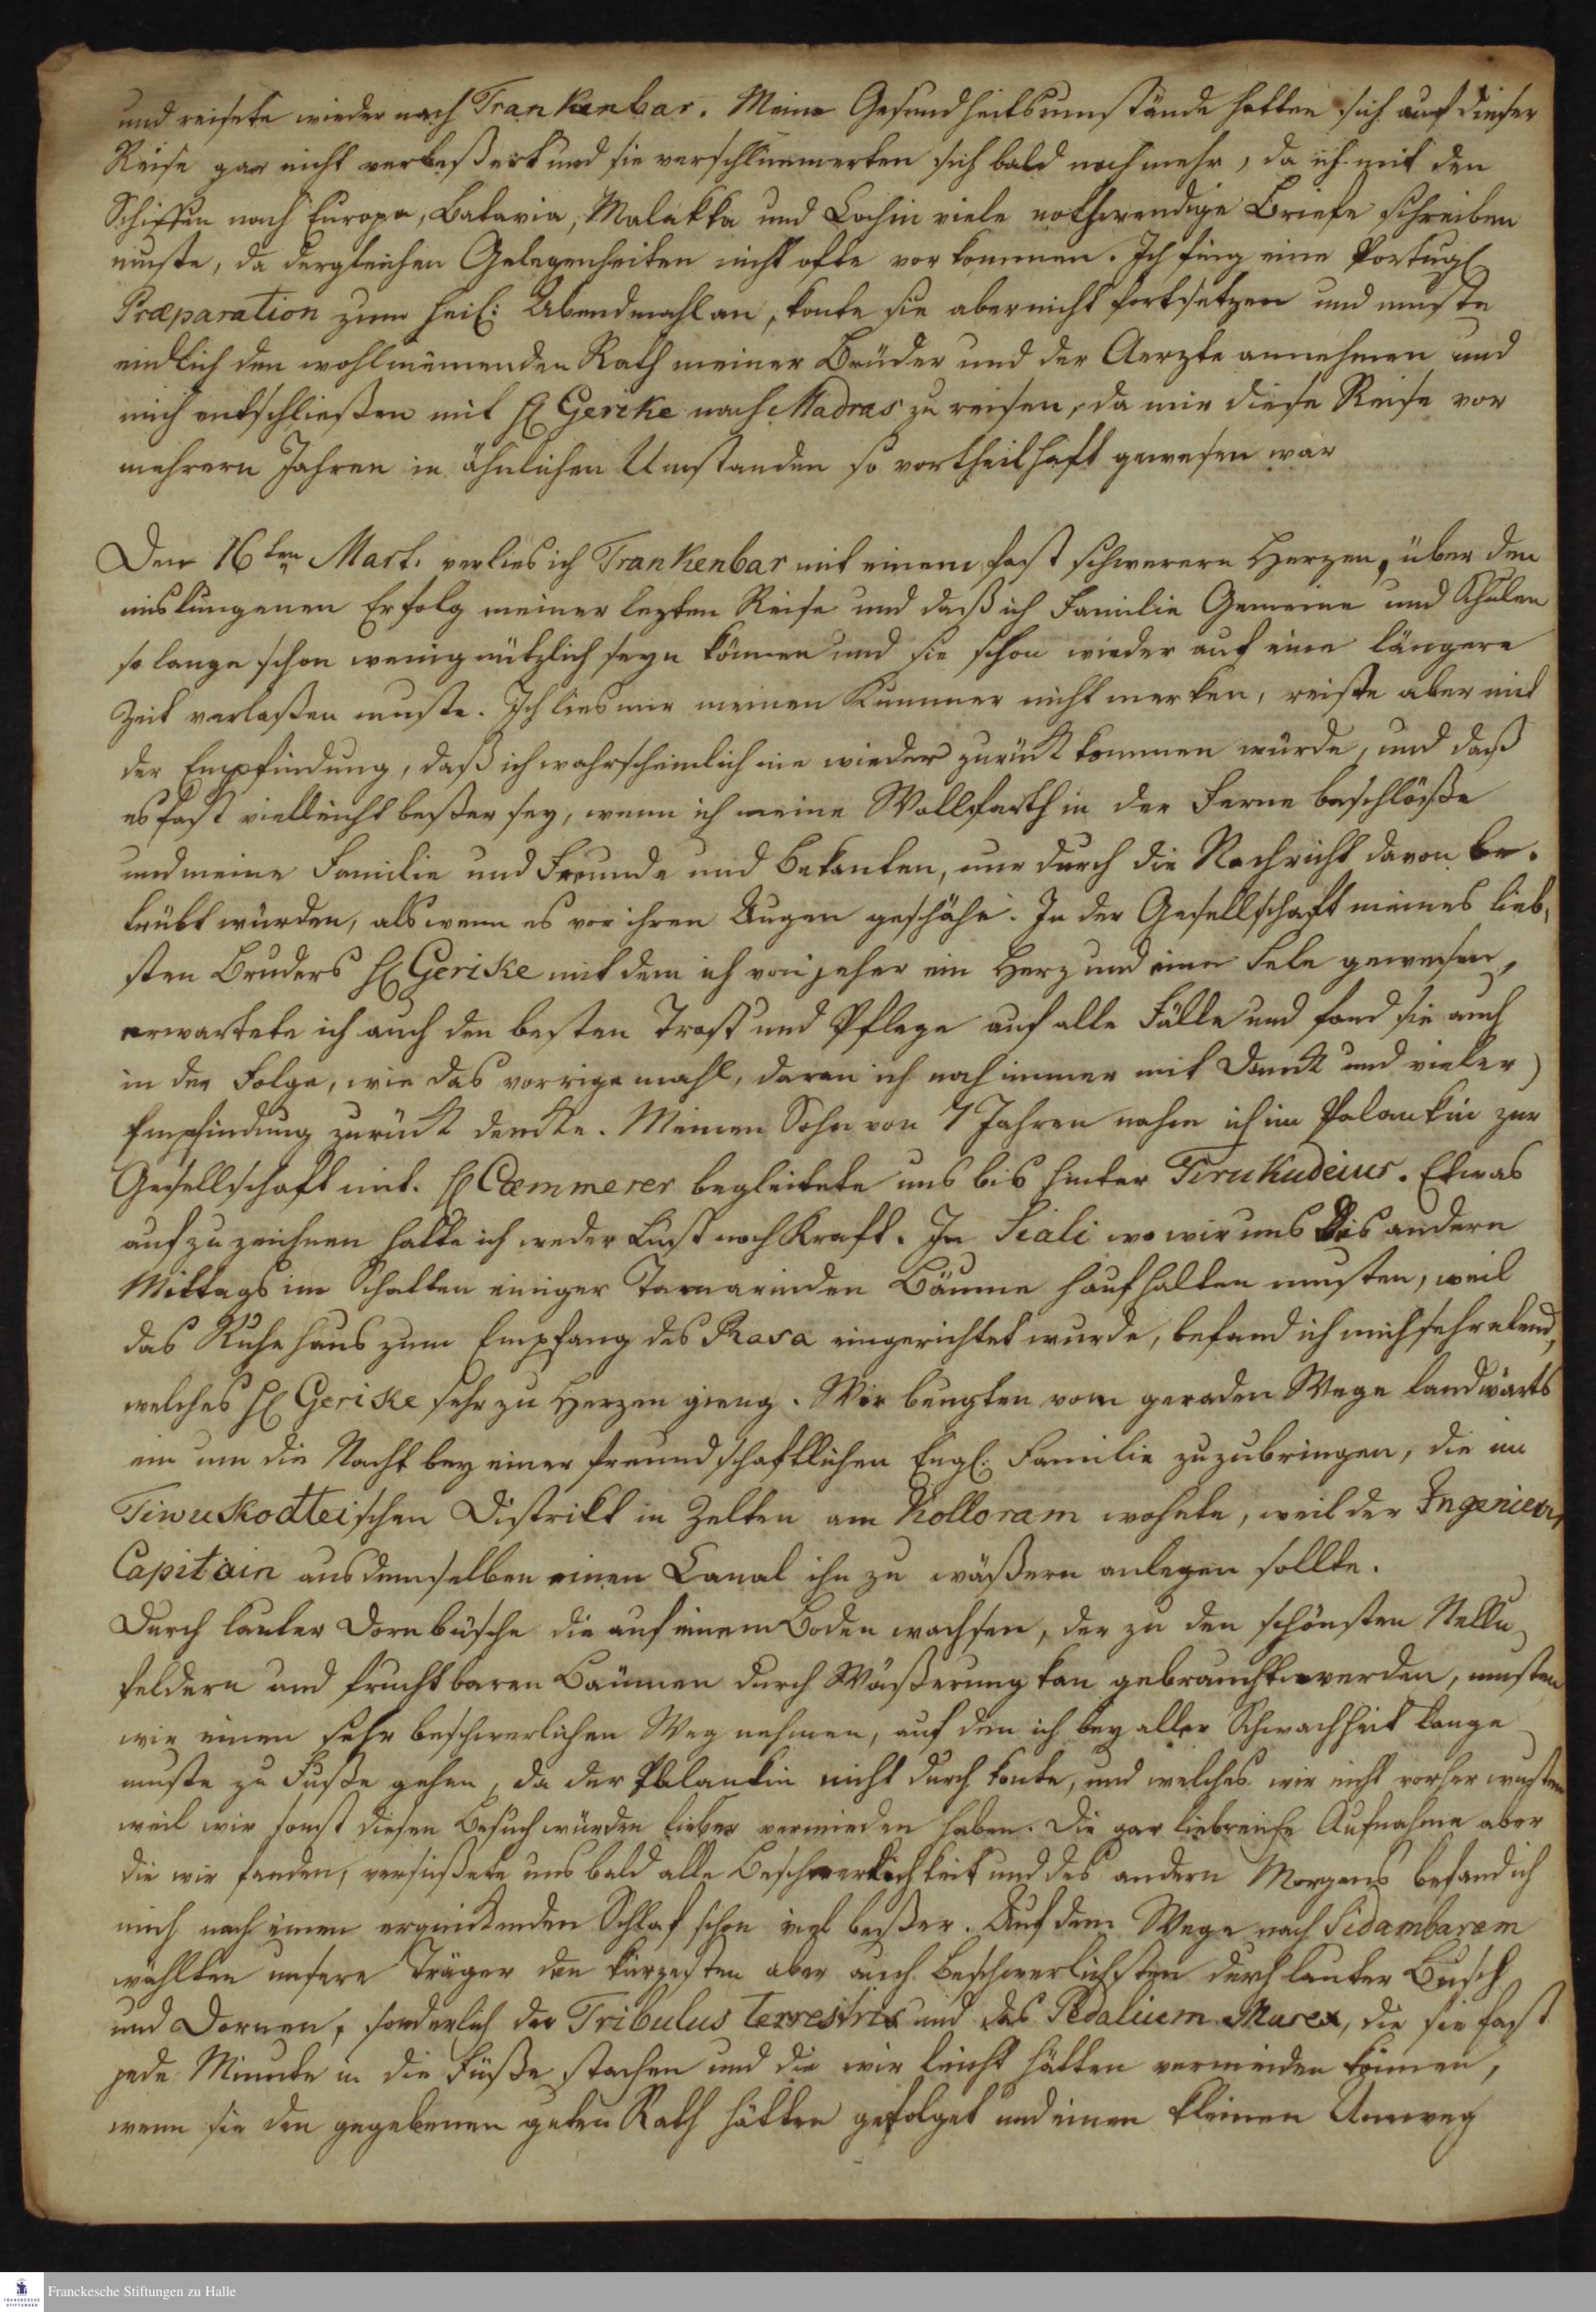 und reisete wieder nach Trankenbar. Meine Gesundheitsumstände hatten sich auf dieser
Reise gar nicht verbeßert und sie verschlimmerten sich bald noch mehr, da ich mit den
Schiffen nach Europa, Batavia, Malakka und Cochin viele nothwendige Briefe schreiben
muste, da dergleichen Gelegenheiten nicht ofte vorkommen. Ich fing eine Portugl
Præparation zum heil: Abendmahl an, konte sie aber nicht fortsetzen und muste
endlich den wohlmeinenden Rath meiner Brüder und der Aerzte annehmen und
mich entschließen mit H Gericke nach Madras zu reisen, da mir diese Reise vor
mehrern Jahren in ähnlichen Umstanden so vortheilhaft gewesen war
Den 16ten Mart. verlies ich Trankenbar mit einem fast schwerern Herzen, über den
mislungenen Erfolg meiner lezten Reise und daß ich Familie Gemeine und Schulen
so lange schon wenig nützlich seyn können und sie schon wieder auf eine längere
Zeit verlaßen muste. Ich lies mir meinen Kummer nicht merken, reiste aber mit
der Empfindung, daß ich wahrscheinlich nie wieder zurück kommen würde, und daß
es fast vielleicht beßer sey, wenn ich meine Wallfarth in der Ferne beschlöße
und meine Familie und Freunde und Bekanten, nur durch die Nachricht davon be-
trübt würden, als wenn es vor ihren Augen geschähe. In der Gesellschaft meines lieb,
sten Bruders H Gerike mit dem ich von jeher ein Herz und eine Sele gewesen,
erwartete ich auch den besten Trost und Pflege auf alle Fälle und fand sie auch
in der Folge, wie das vorrige mahl, daran ich noch immer mit Danck und vieler
Empfindung zurück dencke. Meinen Sohn von 7 Jahren nahm ich im Palankin zur
Gesellschaft mit. H Cæmmerer begleitete uns bis hinter Tirukudeiur. Etwas
aufzuzeichnen hatte ich weder Lust noch Kraft. In Siali wo wir uns des andern
Mittags im Schatten einiger Tamarinden Bäume aufhalten musten, weil
das Ruhehaus zum Empfang des Rasa eingerichtet wurde, befand ich mich sehr elend,
welches H Gerike sehr zu Herzen gieng. Wir beugten vom geraden Wege landwärts
ein um die Nacht bey einer freundschaftlichen Engl: Familie zuzubringen, die im
Tiwukodteischen Distrikt in Zelten am Kolloram wohnte, weil der Ingenieur,
Capitain aus demselben einen Canal ihn zu wäßern anlegen sollte.
Durch lauter Dornbüsche die auf einem Boden wachsen, der zu den schönsten Nellu,
feldern und fruchtbaren Bäumen durch Wäßerung kan gebraucht werden, musten
wir einen sehr beschwerlichen Weg nehmen, auf dem ich bey aller Schwachheit lange
muste zu Fuße gehen, da der Palankin nicht durch konte, und welches wir nicht vorher wusten
weil wir sonst diesen Besuch würden lieber vermieden haben. Die gar liebreiche Aufnahme aber
die wir fanden, versüßete uns bald alle Beschwerlichkeit und des andern Morgens befand ich
mich nach einen erquickenden Schlaf schon viel beßer. Auf dem Wege nach Sidambaram
wählten unsere Träger den kürzesten aber auch beschwerlichsten durch lauter Busch
und Dornen, sonderlich der Tribulus terrestris und das Pedalium Murex, die sie fast
jede Minute in die Füße stachen und die wir leicht hätten vermeiden können,
wenn sie den gegebenen guten Rath hätten gefolget und einen kleinen Umweg
Franckesche Stiftungen zu Halle